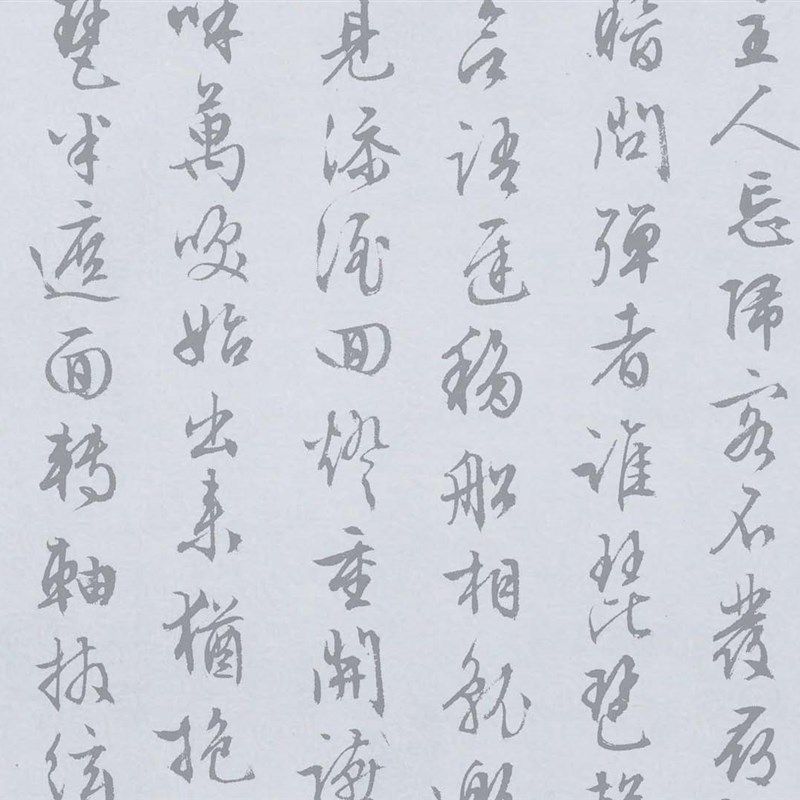 主人忘歸客不發尋
暗問彈者誰琵琶
語遲移船相就邀
見添酒回燈重開讌
呼萬喚始出來猶抱
琶半遮面轉軸撥絃